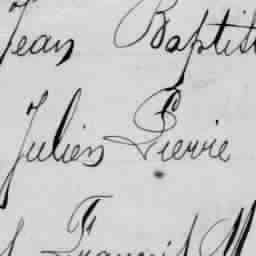 Jean Baptist
Julien Pierre
François M